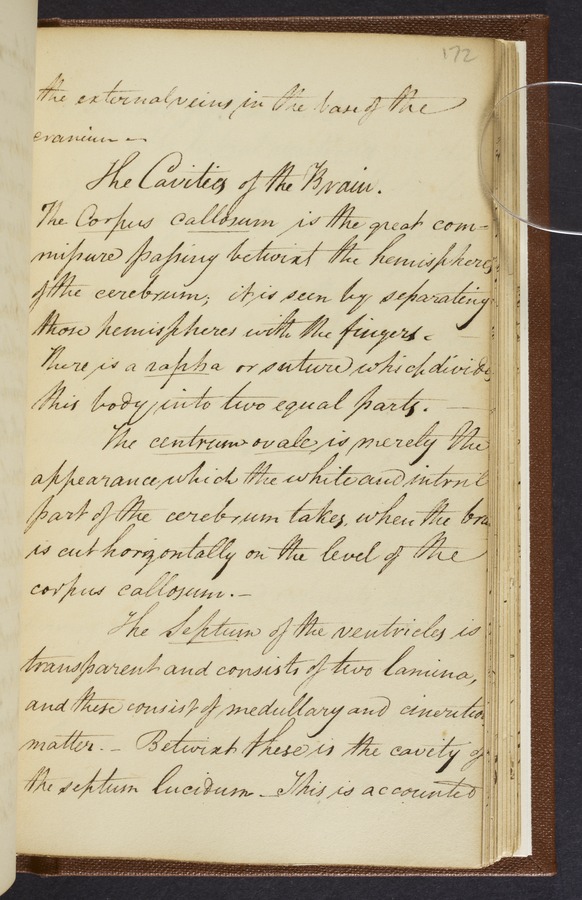 172
the external veins, in the base of the
cranium -
The Cavities of the Brain.
The Corpus callosum is the great com=
missure passing betwixt the hemispheres
of the cerebrum; it, is seen by separating
those hemispheres with the fingers. -
There is a rapha or suture which divides
this body, into two equal parts. -
The centrum ovale, is merely the
appearance, which the white and intrnl
part of the cerebrum takes, when the bra
is cut horizontally on the level of the
corpus callosum. -
The Septum of the ventricles is
transparent and consists of two lamina,
and these consist of medullary and cineritio
matter. - Betwixt these is the cavety of
the septum lucidum - This is accounted